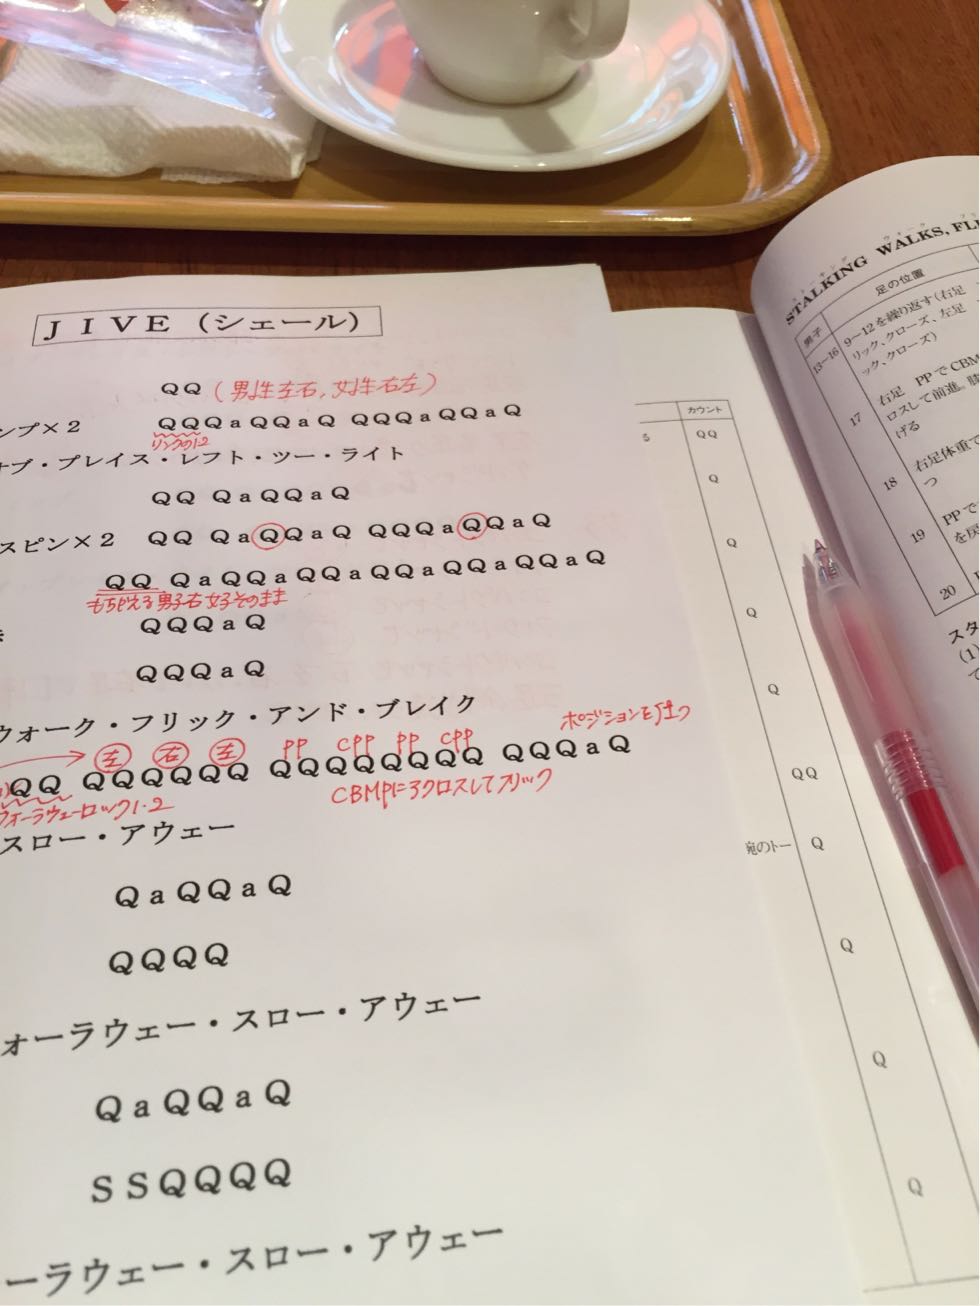 JIVE（シェール）
QQ（男性左右,女性右左）
ンプ×2 QQQaQQaQ QQQaQQaQ
リンクの1·2
オブ・プレイス・レフト・ツー・ライト
QQ QaQQaQ
スピン×2 QQ QaQQaQ QQQaQQaQ
QQ QaQQaQQaQQaQQaQQaQ
もちかえる男子右女子そのまま
QQQaQ
QQQaQ
ウォーク・フリック・アンド・ブレイク
左 右 左 PP CPP PP CPP ポジションを
QQ QQQQQQ QQQQQQQQ QQQaQ
フォーラウェーロック1·2
CBMPに3クロスしてフリック
スロー・アウェー
QaQQaQ
QQQQ
ォーラウェー・スロー・アウェー
QaQQaQ
SSQQQQ
ーラウェー・スロー・アウェー
カウント
QQ
Q
Q
Q
Q
QQ
Q
Q
Q
Q
STALKING WALKS, FLI
男子 足の位置
13~16 9~12を繰り返す(右足
リック、クローズ、左足
ック、クローズ)
17 右足 PPでCBM
ロスして前進。膝
げる
18 右足体重で
つ
19 PPで
を反
20
スタ
(1)
て